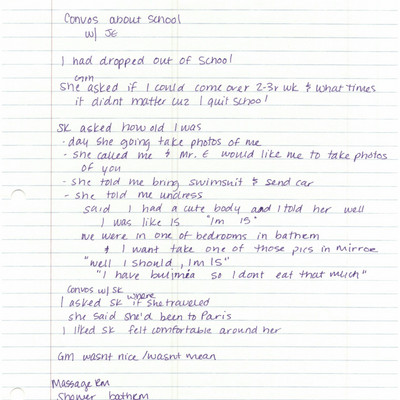 Convos about school
w/ JE
I had dropped out of school
GM
She asked if I could come over 2-3x wk & what times
it didnt matter cuz I quit school
SK asked how old I was
- day she going take photos of me
- she called me & Mr. E would like me to take photos
of you
- she told me bring swimsuit & send car
- she told me undress
said I had a cute body and I told her well
I was like 15 "Im 15"
we were in one of bedrooms in bathrm
& I want take one of those pics in mirror
"well I should, Im 15"
"I have bulimia so I dont eat that much"
Convos w/ SK
where
I asked SK if she traveled
she said she'd been to Paris
I liked SK felt comfortable around her
GM wasnt nice / wasnt mean
Massage Rm
Shower bathrm